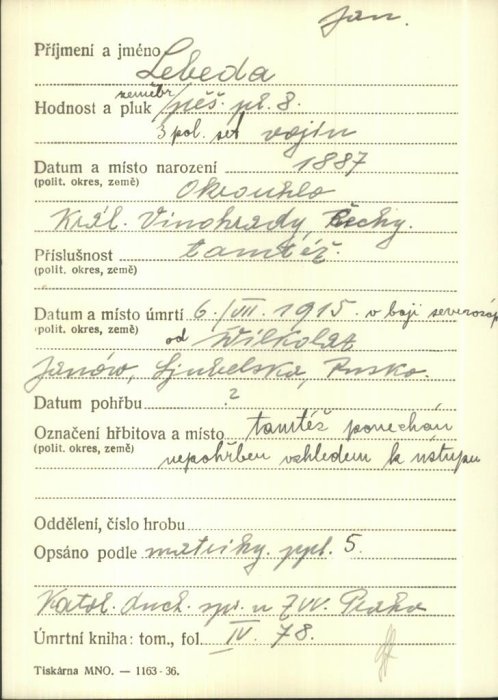 Jan.
Příjmení a jméno Lebeda
zeměbr.
Hodnost a pluk pěš. pl. 8.
3 pol. set. vojín
Datum a místo narození 1887
(polit. okres, země) Okrouhlo
Král. Vinohrady, Čechy.
Příslušnost tamtéž.
(polit. okres, země)
Datum a místo úmrtí 6./VII. 1915 v boji severozáp
(polit. okres, země) od Wilkolaz
Janów, Ljubelska, Rusko.
Datum pohřbu ?
Označení hřbitova a místo tamtéž ponechán
(polit. okres, země) nepohřben vzhledem k ústupu
Oddělení, číslo hrobu
Opsáno podle matriky. ppl. 5.
Katol. duch. spr. u ZVV. Praha
Úmrtní kniha: tom., fol. IV. 78.
Tiskárna MNO. — 1163-36.